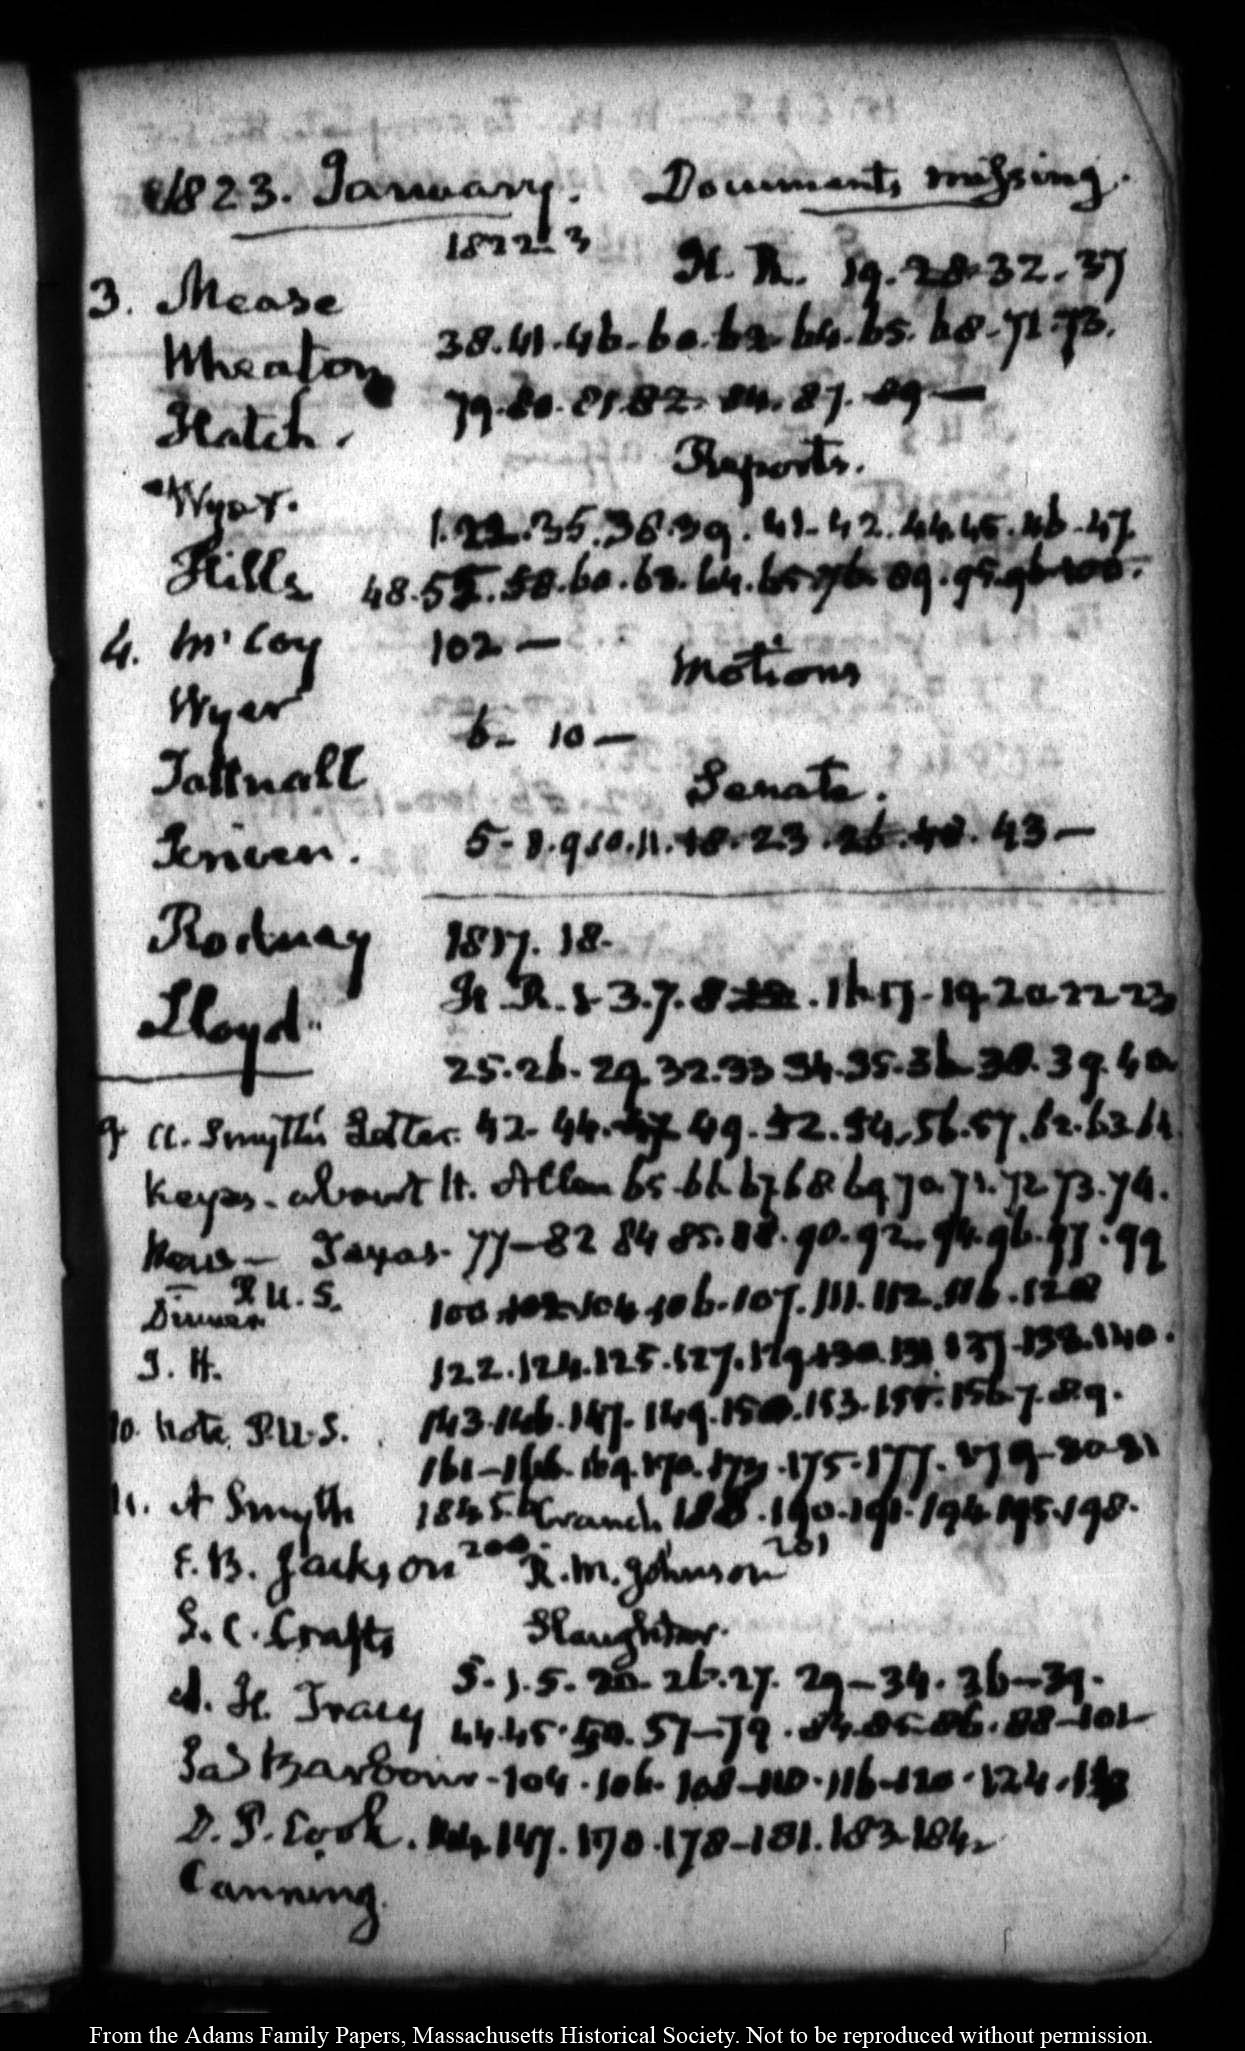 1823. January. Documents missing.
1822-3
H. R. 19.28.32.37
3. Mease
38.41.46.60.62.64.65.68.71.73.
Wheaton
79.80.81.82.84.87.89—
Hatch.
Reports.
Wyer.
1.22.35.36.39.41-42.44.45.46-47.
Hills 48.55.58.60.63.64.65.76.89.95.96.100.
4. McCoy 102—
Motions
Wyer
6- 10—
Tattnall
Senate.
Scriven. 5-8.9.10.11.18.23.26.40.43—
Rodney 1817.18.
Lloyd H. R. 1-3.7.8 .16 17-19 20 22 23
25.26.29 32.33 34.35.36 38.39.40
9 A. Smyth's Letter. 42-44.47 49.52.54.56.57.62.63.64
Keyes-about H. Allen 65-66 67 68 69 70.71.72 73.74.
News— Texas. 77—82 84 85.88.90.92.94.96.97.99
P. U. S.
Dinner 100.102.104.106.107.111.112.116.120
J. H. 122.124.125.127.129.130.131.137-138.140.
10. Note. P.U.S. 143.146.147.149.150.153.155.156 7.8.9.
161-166.169.170.173.175-177.179-80-81
11. A Smyth 184 5.6 Cranch 188.190.191.194.195.198.
F. B. Jackson 200. R. M. Johnson 201
S. C. Crafts Slaughter.
S.1.5.20.26.27.29—34.36—39.
A. H. Tracy 44.45.50.57—79.84.85.86.88—101
Jas Barbour-104.106.108-110.116-120.124.
D. P. Cook. 144.147.170.178-181.183-184
Canning.
From the Adams Family Papers, Massachusetts Historical Society. Not to be reproduced without permission.